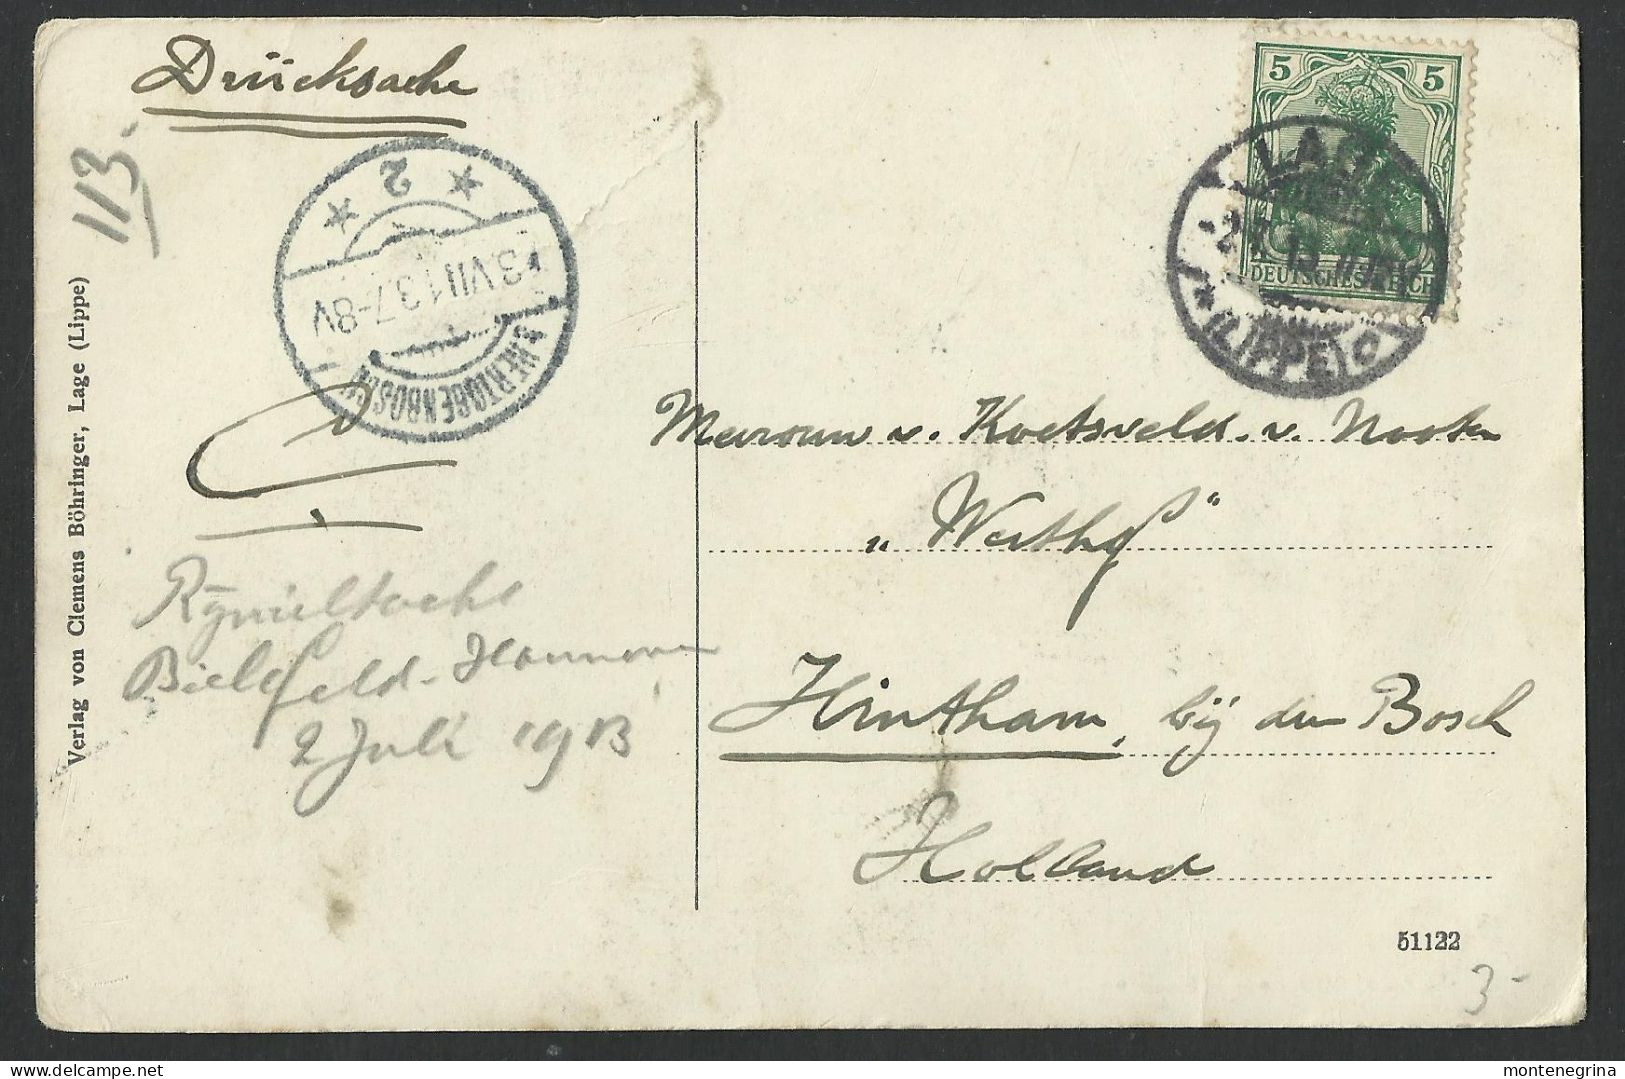 Drücksache
113-
2
3.VII 13.7-8V
'S HERTOGENBOSCH
5 5
DEUTSCHES REICH
LAGE
-2.7.13.
*(LIPPE)c
Mevrouw v. Koetsveld. v. Nooten
„Werthof“
Hintham, bij den Bosch
Holland
Bielefeld-Hannover
2 Juli 1913
Verlag von Clemens Böhringer, Lage (Lippe)
51122
3-
montenegrina